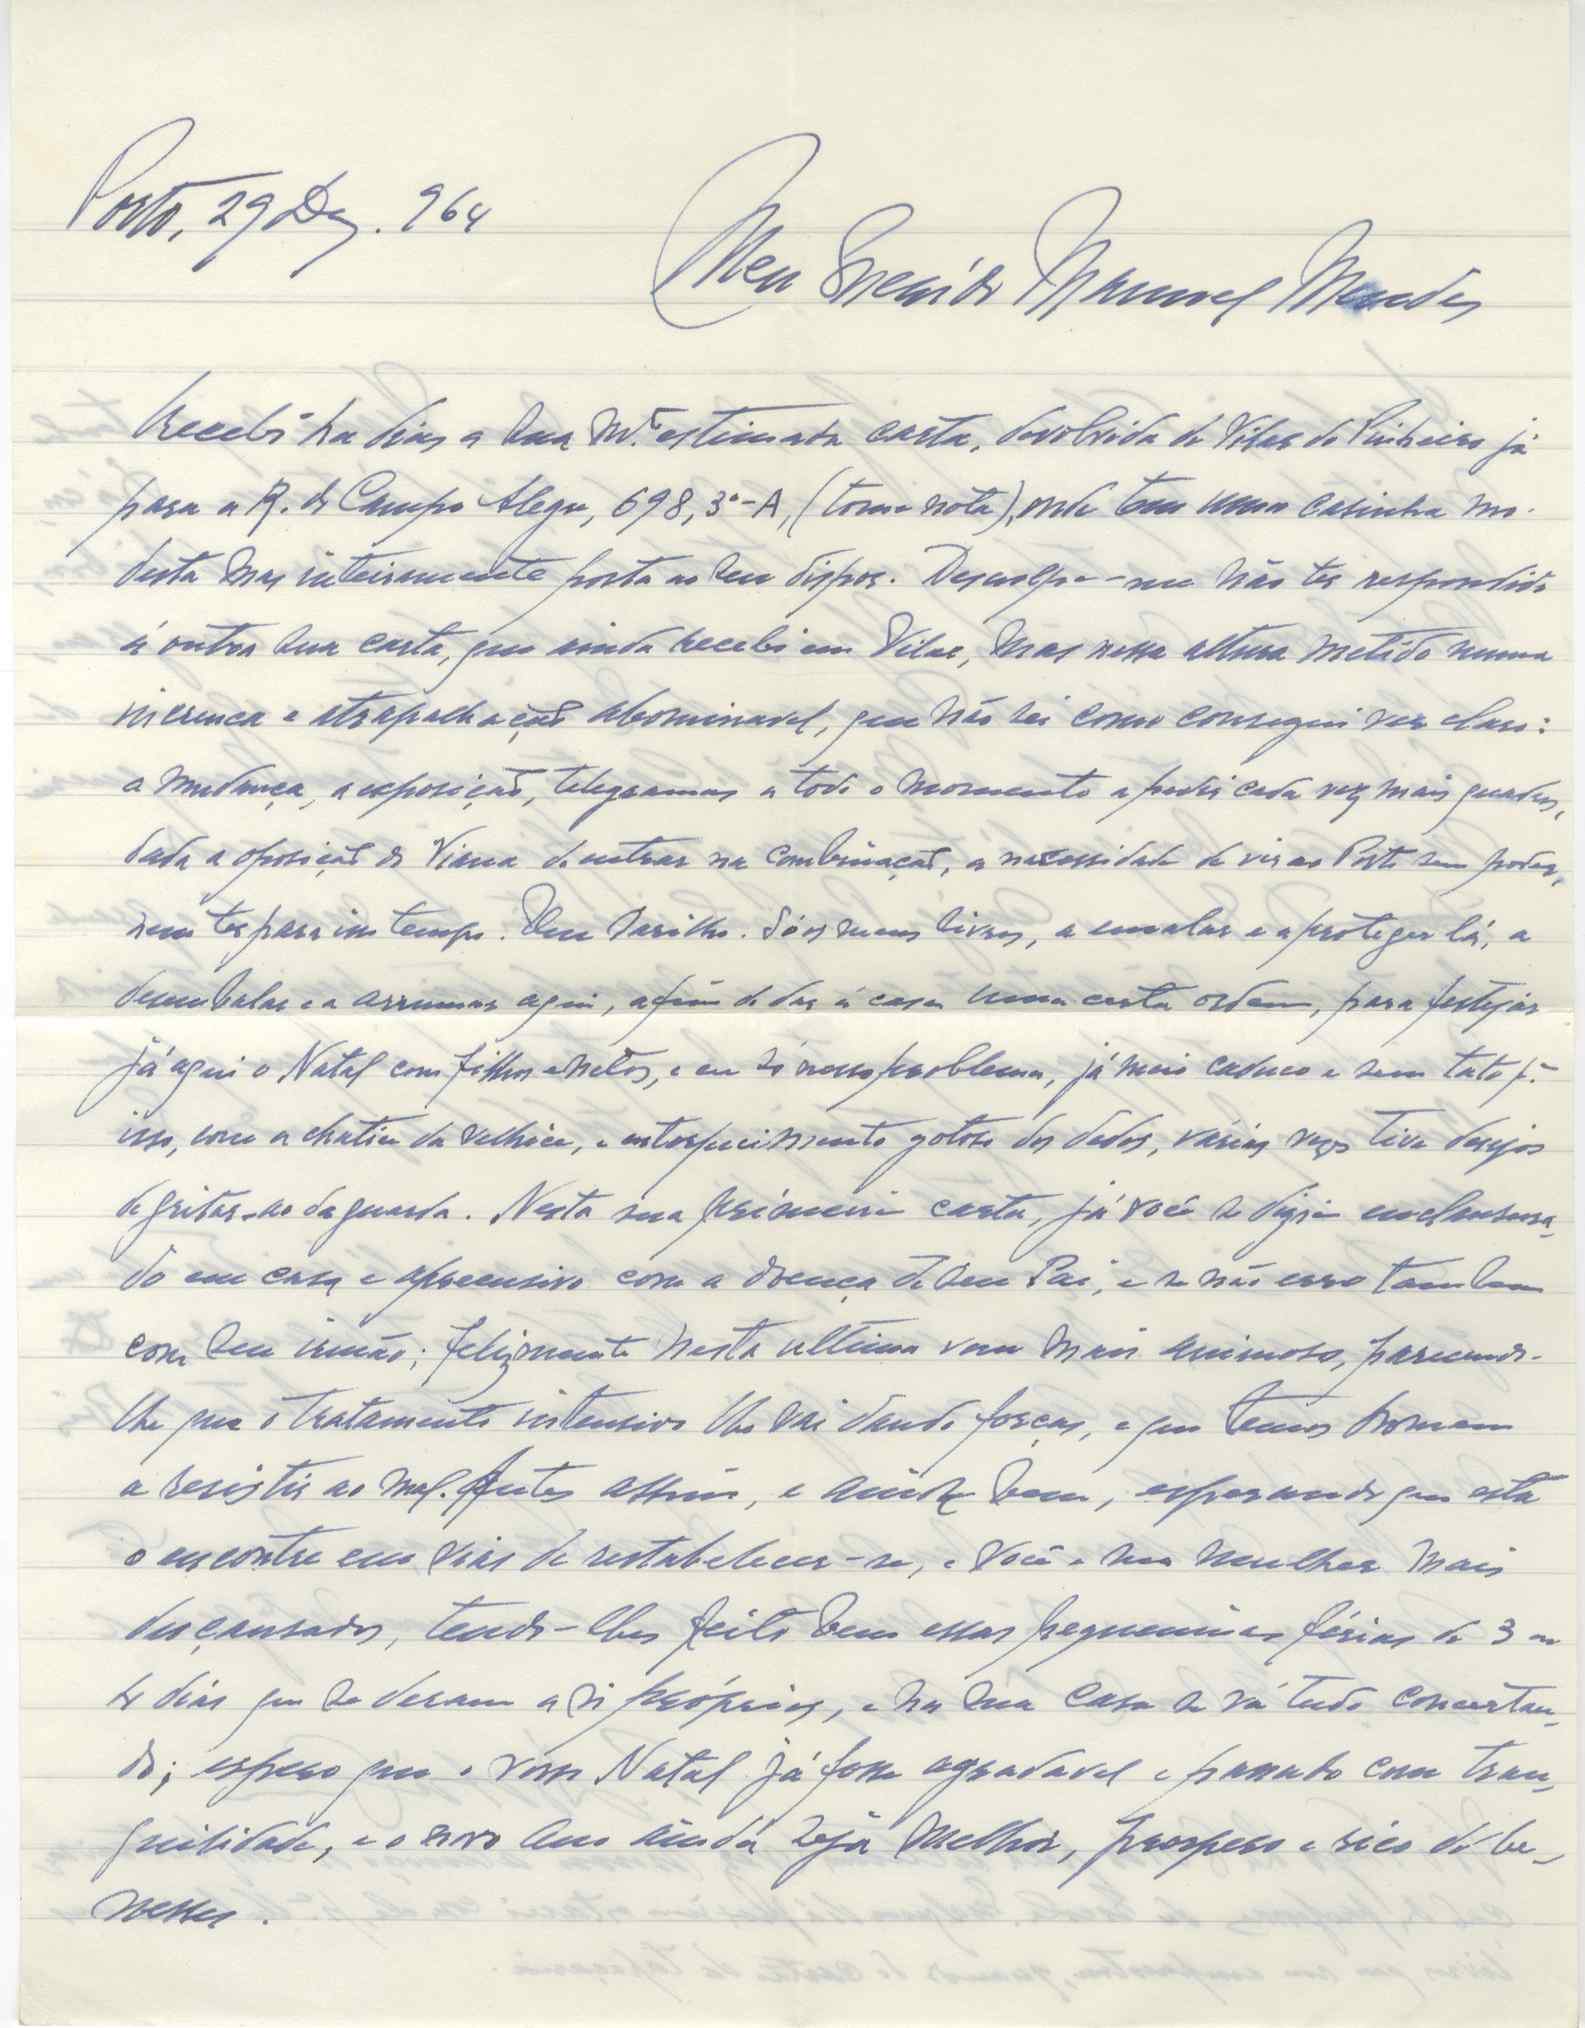 Porto, 29 Dez. 964
Meu Querido Manuel Mendes
Recebi ha dias a sua m.to estimada carta, devolvida de Vilar do Pinheiro já
para a R. do Campo Alegre, 698, 3º-A, (tome nota), onde tem uma casinha mo-
desta mas inteiramente posta ao seu dispor. Desculpe-me não ter respondido
á outra sua carta, que ainda recebi em Vilar, mas nessa altura metido numa
e atrapalhação abominavel, que não sei como consegui ver claro:
a mudança, a exposição, telegramas a todo o momento a pedir cada vez mais quadros,
dada a oposição de Viana de entrar na combinação, a necessidade de vir ao Porto sem poder,
nem ter para isso tempo. Um sarilho. Só os meus livros, a emalar e a proteger lá, a
desembalar e a arrumar aqui, afim de dar á casa uma certa ordem, para festejar
já aqui o Natal com filhos e netos, e eu só nesse problema, já meio caduco e sem tato p.ª
isso, com a chatice da velhice, e entorpecimento gotoso dos dedos, várias vezes tive desejos
de gritar-ao da guarda. Nesta sua primeira carta, já você se dizia enclausura-
do em casa e apreensivo com a doença de seu Pai, e se não erro tambem
com seu irmão; felizmente nesta ultima vem mais animoso, parecendo-
lhe que o tratamento intensivo lhe vai dando forças, e que temos homem
a resistir ao mal. Antes assim, e ainda bem, esperando que esta
o encontre em vias de restabelecer-se, e Você e sua mulher mais
descançados, tendo-lhes feito bem essas pequeninas férias de 3 ou
4 dias que se deram a si próprios, e na sua casa se vá tudo concertan-
do; espero que o vosso Natal já fosse agradavel e passado com tran-
quilidade, e o novo ano ainda seja melhor, prospero e rico de be-
nesses.